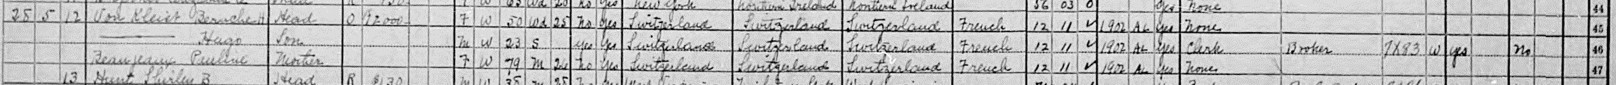 New York Northern Ireland Northern Ireland 56 03 0 yes None 44
25 5 12 Von Kleist Head O F W 50 Wd 25 no yes Switzerland Switzerland Switzerland French 12 11 ✓ 1902 AL yes None 45
——— Hugo Son M W 23 S yes yes Switzerland Switzerland Switzerland French 12 11 ✓ 1902 AL yes Clerk Broker 7X83 W yes no 46
Beaujeaux Pauline Mother F W 79 M no yes Switzerland Switzerland Switzerland French 12 11 ✓ 1902 AL yes None 47
13 Hunt Shirley B Head R $130 M W 35 M